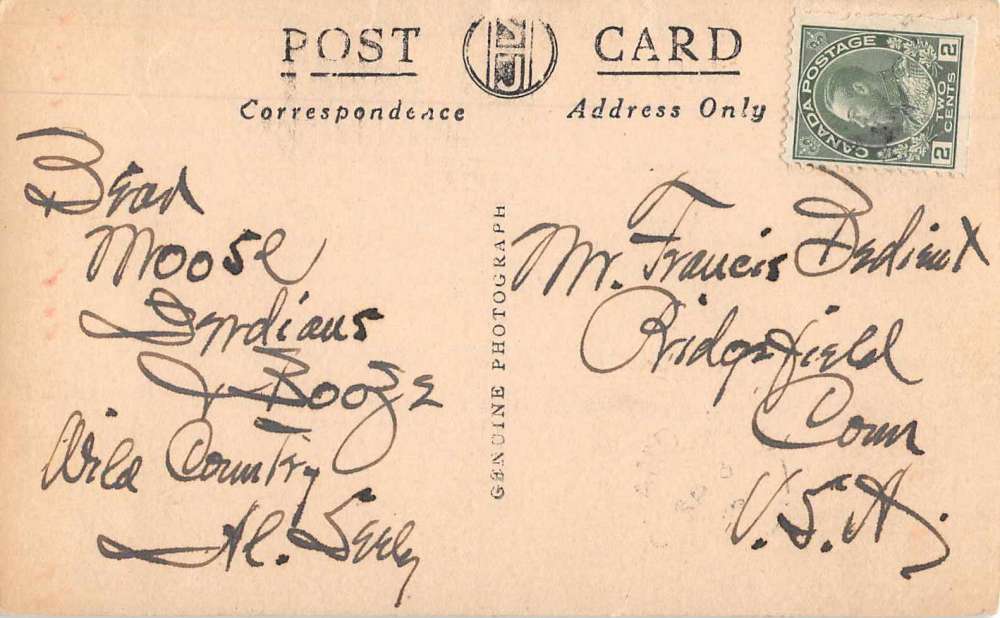 POST CARD
Correspondence
Address Only
CANADA POSTAGE
2 TWO CENTS 2
Bear
Moose
Indians
& Booze
Wild Country
Al. Seely
GENUINE PHOTOGRAPH
Mr. Francis Bedient
Ridgefield
Conn
U.S.A.